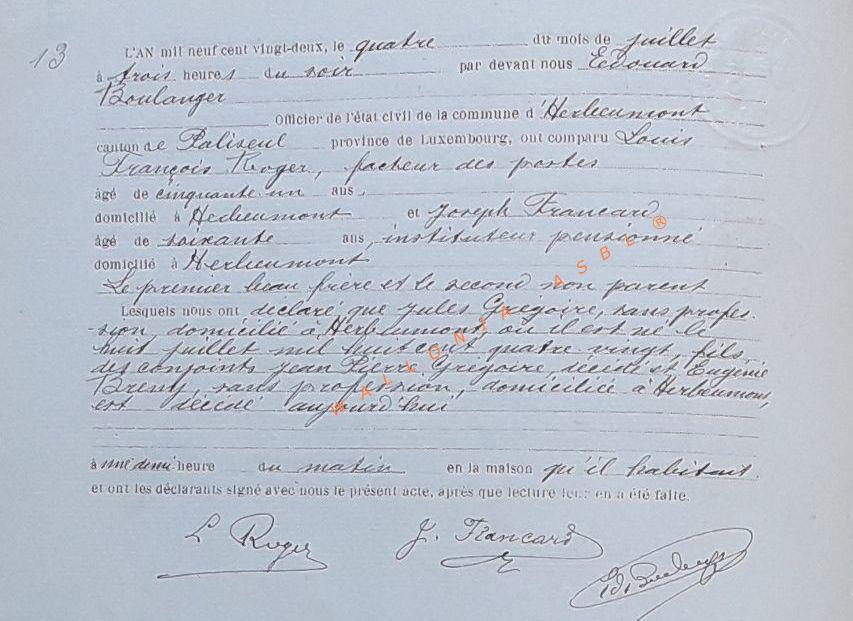 13
L'AN mil neuf cent vingt-deux, le quatre du mois de juillet
à trois heures du soir par devant nous Edouard
Boulanger
Officier de l'état civil de la commune d'Herbeumont
canton de Paliseul province de Luxembourg, ont comparu Louis
François Roger, facteur des postes
âgé de cinquante un ans,
domicilié à Herbeumont et Joseph Francard
âgé de soixante ans, instituteur pensionné
domicilié à Herbeumont
Le premier beau frère et le second non parent
Lesquels nous ont déclaré que Jules Grégoire, sans profes-
sion domicilié à Herbeumont, où il est né le
huit juillet mil huit cent quatre vingt, fils
des conjoints Jean Pierre Grégoire, décédé et Eugénie
sans profession, domiciliée à Herbeumont,
est décédé aujourd'hui
à une demi heure du matin en la maison qu'il habitait.
et ont les déclarants signé avec nous le présent acte, après que lecture leur en a été faite.
L Roger J. Francard
Ed. Boulanger
WALLONIA ASBL ®